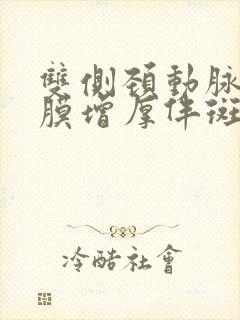 雙側頚動脈
膜增厚伴斑
冷酷社會